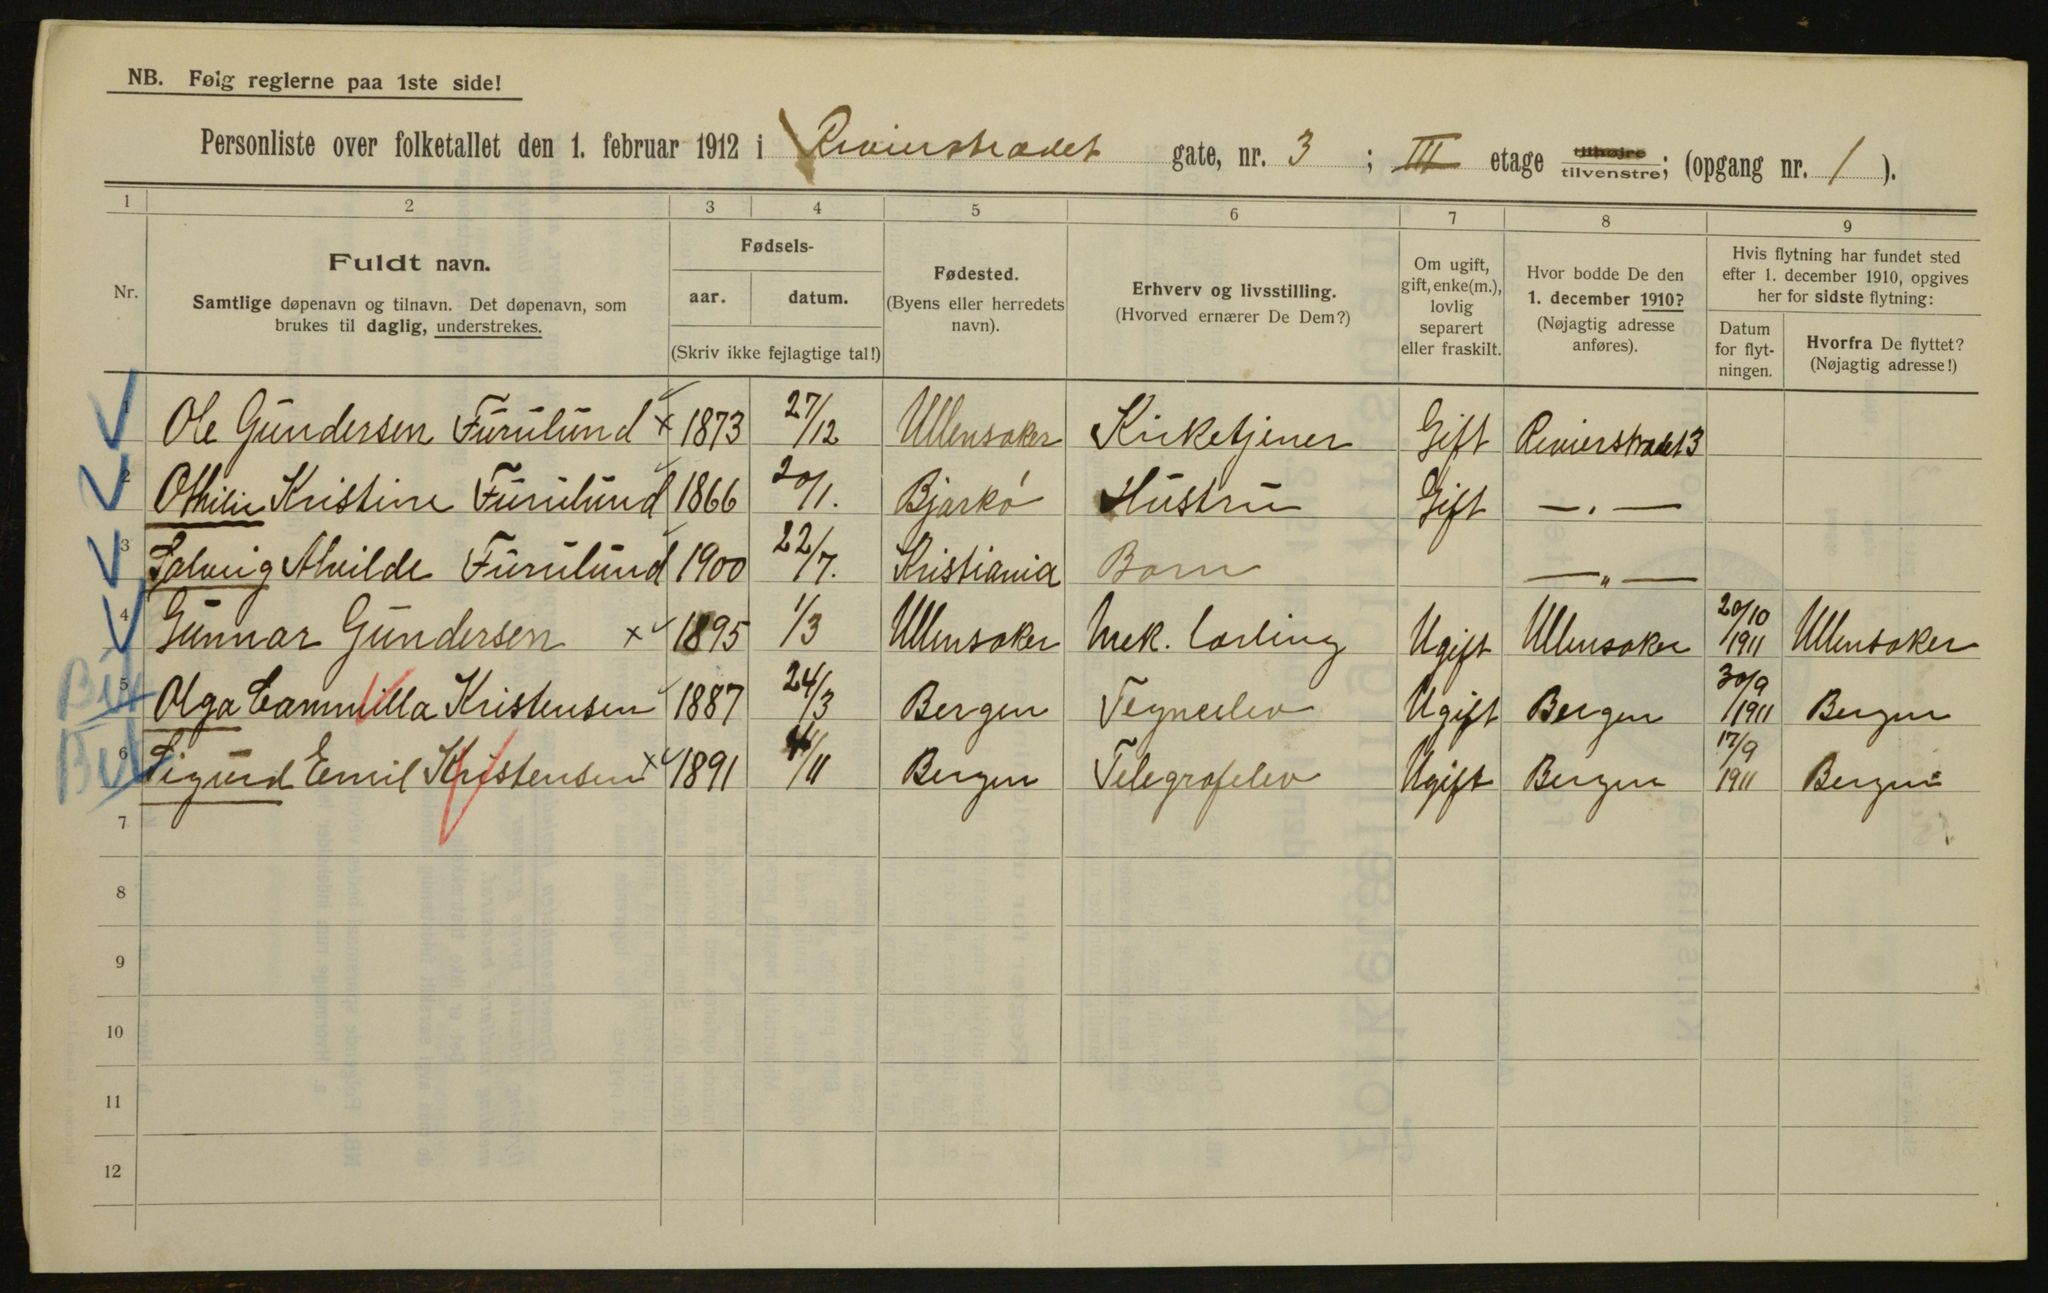 NB. Følg reglerne paa 1ste side!
Personliste over folketallet den 1. februar 1912 i Revierstrædet gate, nr. 3 ; III etage tilhøjre tilvenstre; (opgang nr. 1 ).
1 2 3 4 5 6 7 8 9
Nr.
Fuldt navn.
Samtlige døpenavn og tilnavn. Det døpenavn, som
brukes til daglig, understrekes.
Fødsels-
aar. datum.
(Skriv ikke fejlagtige tal!)
Fødested.
(Byens eller herredets
navn).
Erhverv og livsstilling.
(Hvorved ernærer De Dem?)
Om ugift,
gift, enke(m.),
lovlig
separert
eller fraskilt.
Hvor bodde De den
1. december 1910?
(Nøjagtig adresse
anføres).
Hvis flytning har fundet sted
efter 1. december 1910, opgives
her for sidste flytning:
Datum
for flyt-
ningen.
Hvorfra De flyttet?
(Nøjagtig adresse!)
1 Ole Gundersen Furulund x 1873 27/12 Ullensaker Kirketjener Gift Revierstrædet 3
2 Othilie Kristine Furulund 1866 20/1. Bjarkö Hustru Gift — . —
3 Solveig Alvilde Furulund 1900 22/7. Kristiania Barn — „ —
4 Gunnar Gundersen x 1895 1/3 Ullensaker Mek. lærling Ugift Ullensaker 20/10 1911 Ullensaker
5 Olga Cammilla Kristensen 1887 24/3 Bergen Tegneelev Ugift Bergen 30/9 1911 Bergen
6 Sigurd Emil Kristensen x 1891 /11 Bergen Telegrafelev Ugift Bergen 17/9 1911 Bergen
7
8
9
10
11
12